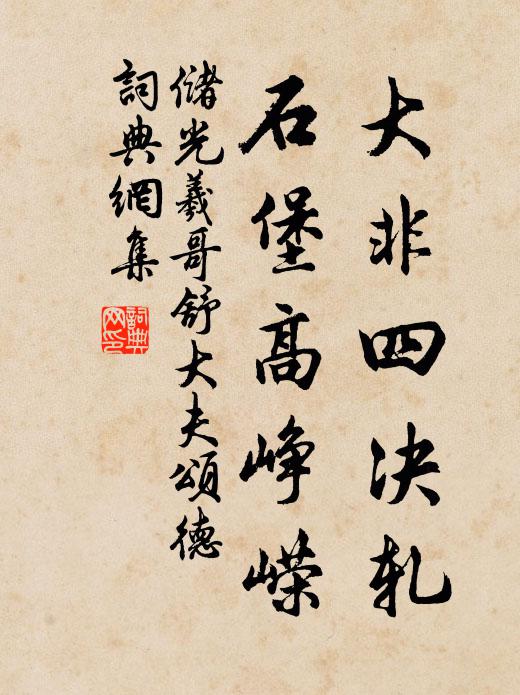 大非四决軋
石堡高峥嶸
儲光羲哥舒大夫頌德
詞典網集
詞典网印